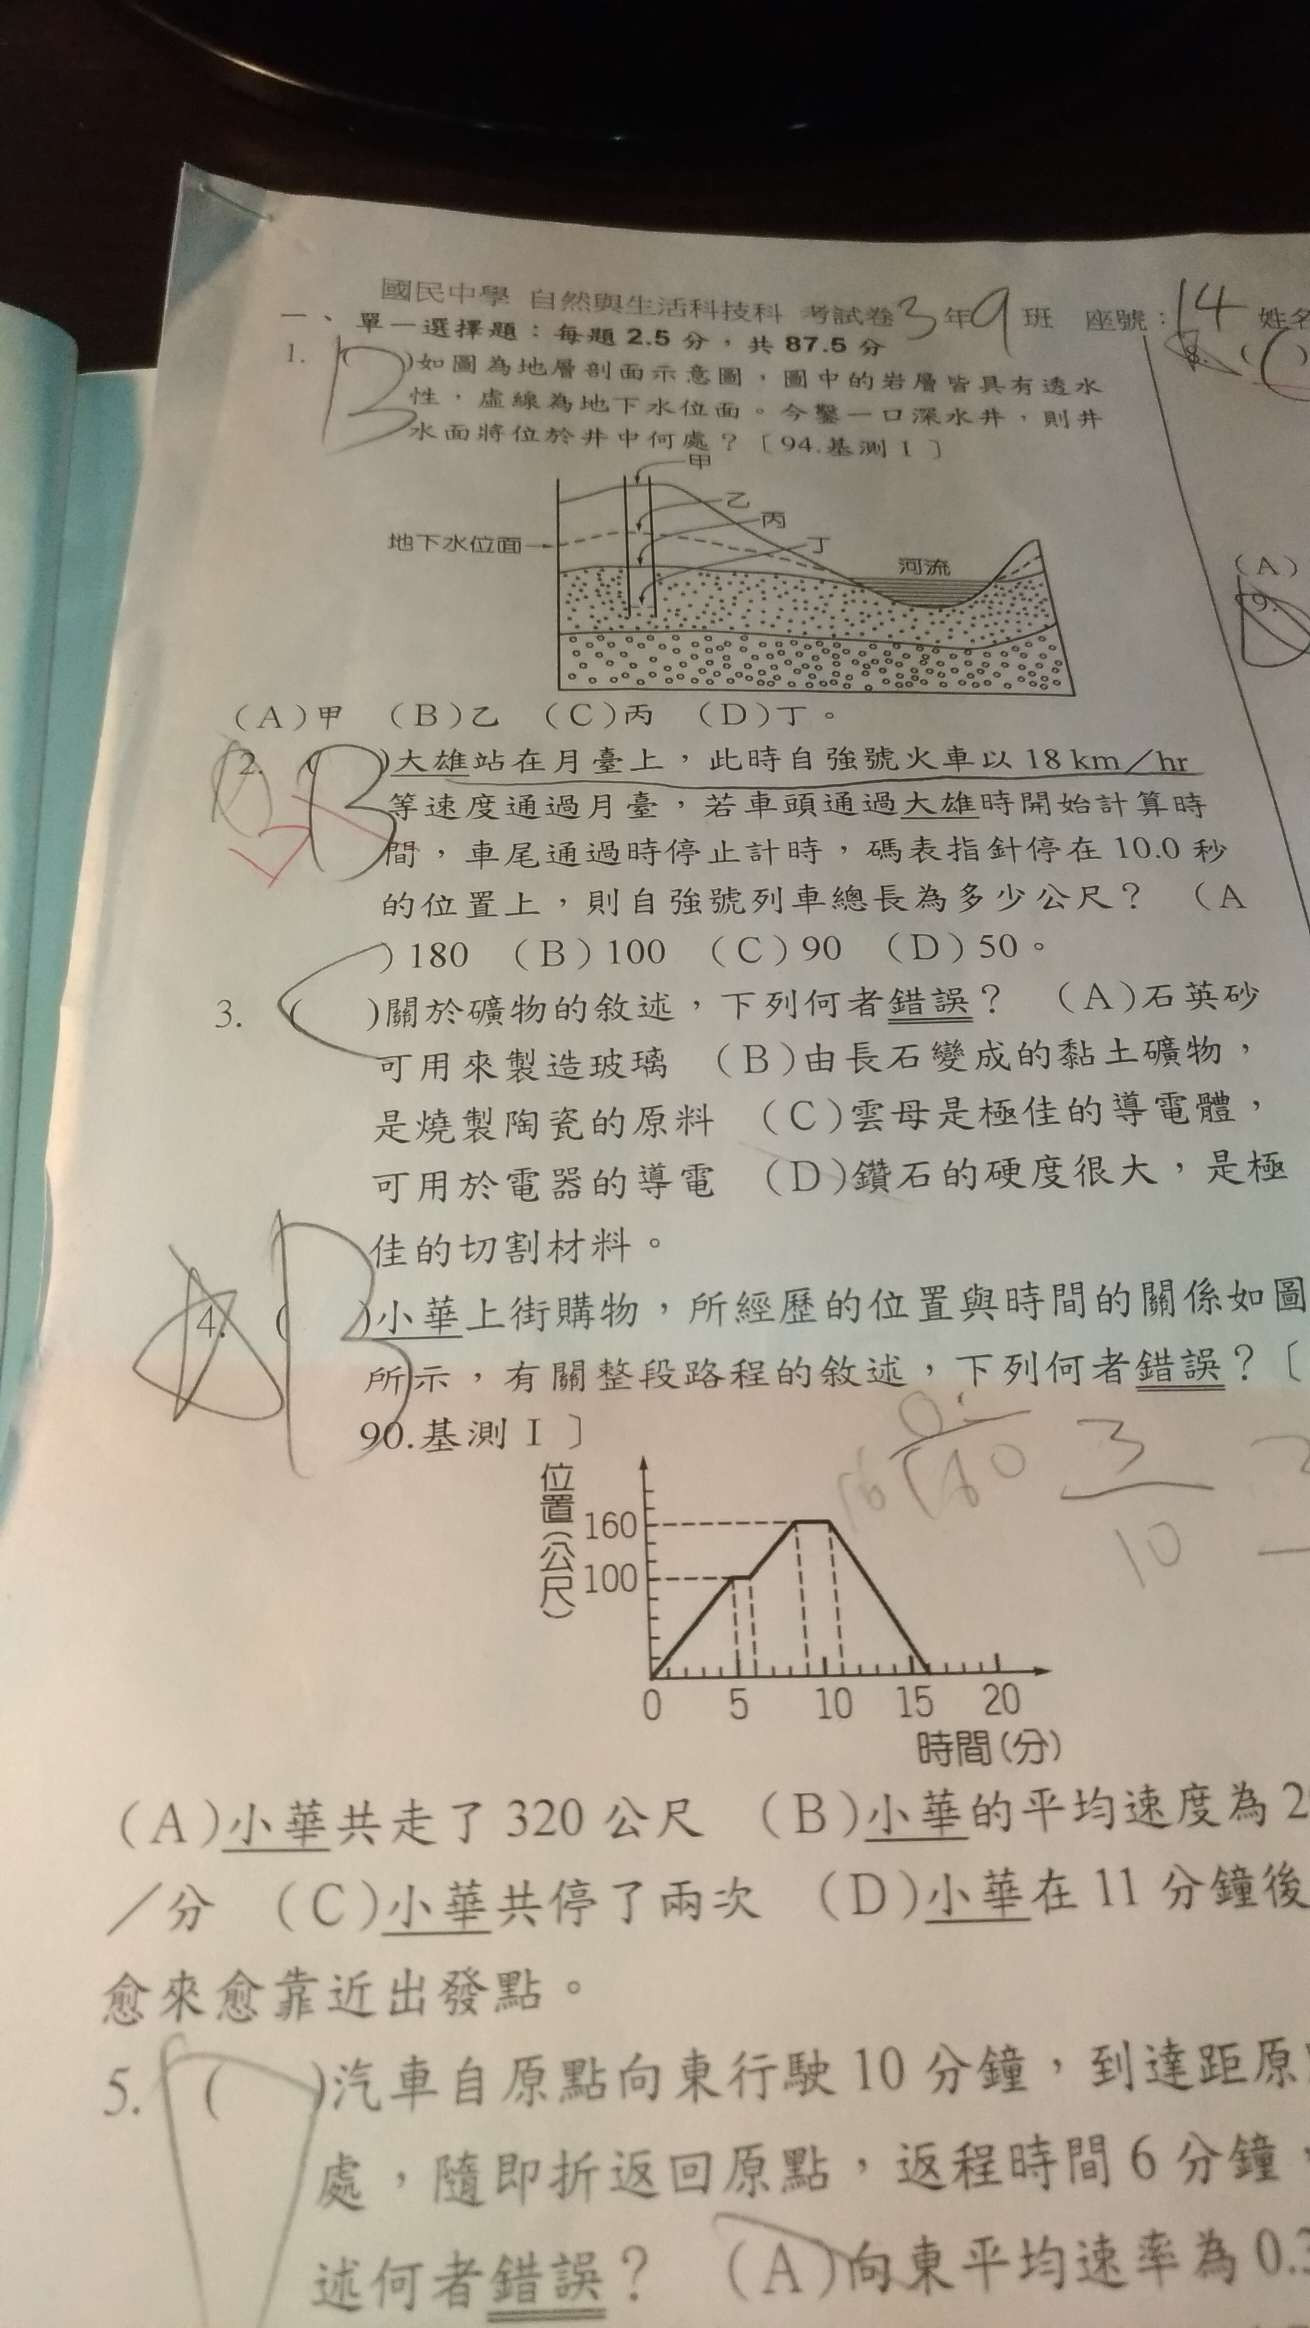 國民中學 自然與生活科技科 考試卷 3 年 9 班 座號：14 姓名
一、單一選擇題：每題 2.5 分，共 87.5 分
1. (B)如圖為地層剖面示意圖，圖中的岩層皆具有透水
性，虛線為地下水位面。今鑿一口深水井，則井
水面將位於井中何處？〔94.基測Ⅰ〕
甲
乙
丙
丁
地下水位面
河流
(A)甲 (B)乙 (C)丙 (D)丁。
2. (B)大雄站在月臺上，此時自強號火車以 18 km／hr
等速度通過月臺，若車頭通過大雄時開始計算時
間，車尾通過時停止計時，碼表指針停在 10.0 秒
的位置上，則自強號列車總長為多少公尺？ (A
) 180 (B) 100 (C) 90 (D) 50。
3. (C)關於礦物的敘述，下列何者錯誤？ (A)石英砂
可用來製造玻璃 (B)由長石變成的黏土礦物，
是燒製陶瓷的原料 (C)雲母是極佳的導電體，
可用於電器的導電 (D)鑽石的硬度很大，是極
佳的切割材料。
4. (B)小華上街購物，所經歷的位置與時間的關係如圖
所示，有關整段路程的敘述，下列何者錯誤？〔
90.基測Ⅰ〕
3
10
位置(公尺)
160
100
0 5 10 15 20
時間(分)
(A)小華共走了 320 公尺 (B)小華的平均速度為 2
／分 (C)小華共停了兩次 (D)小華在 11 分鐘後
愈來愈靠近出發點。
5. ( )汽車自原點向東行駛 10 分鐘，到達距原
處，隨即折返回原點，返程時間 6 分鐘，
述何者錯誤？ (A)向東平均速率為 0.3
8. (C)
(A)
9.